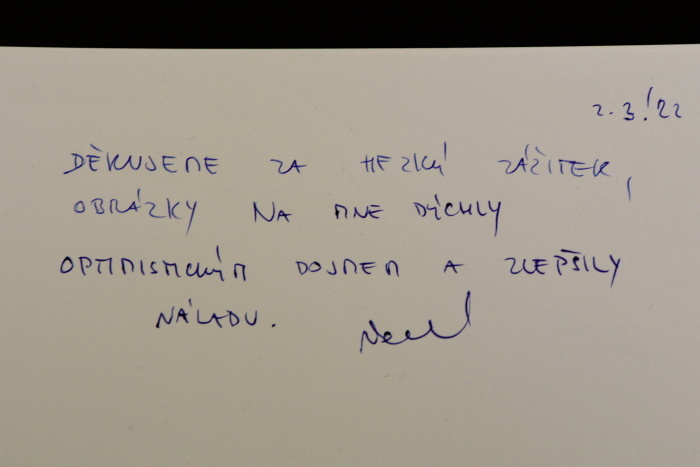 2.3.'22
DĚKUJEME ZA HEZKÝ ZÁŽITEK,
OBRÁZKY NA MNE DÝCHLY
OPTIMISTICKÝM DOJMEM A ZLEPŠILY
NÁLADU.